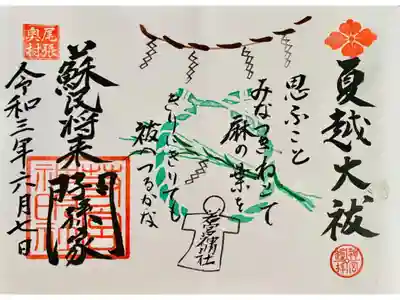 夏越大祓
思ふこと
みなつきねとて
麻の葉を
きりにきりても
祓へつるかな
蘇民将来
子孫家門
令和三年六月七日
尾張
奥村